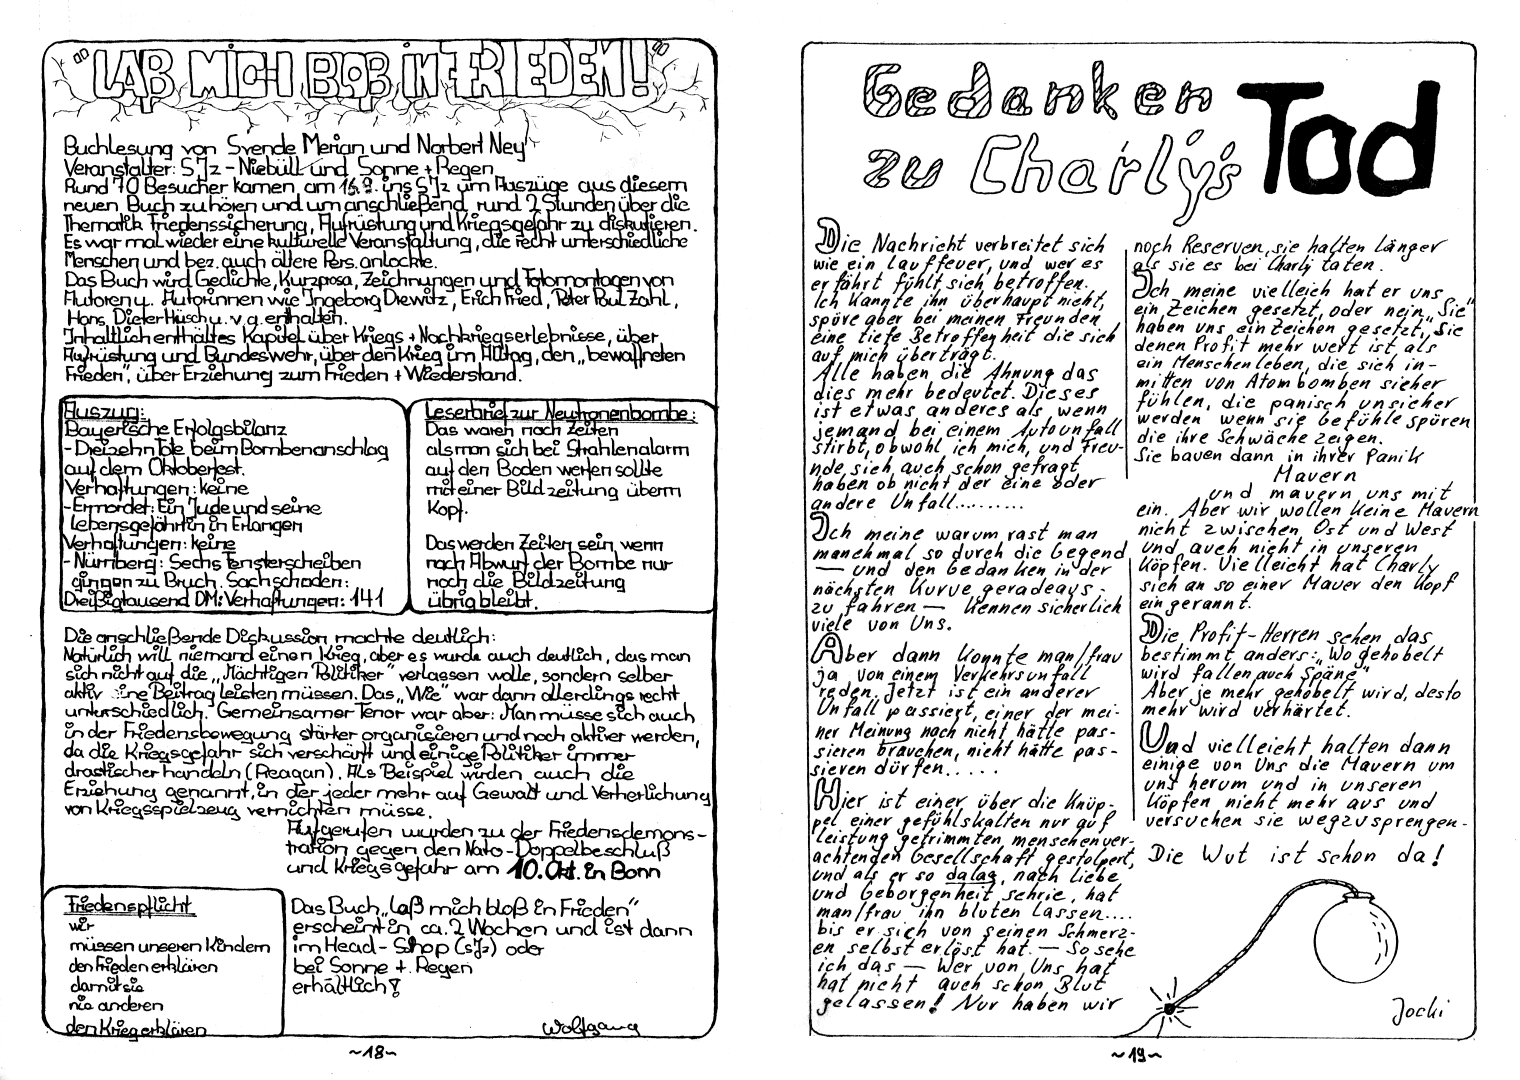 "LAß MICH BLOß IN FRIEDEN!"
Buchlesung von Svende Merian und Norbert Ney
Veranstalter: S'Jz - Niebüll und Sonne + Regen
Rund 70 Besucher kamen am 16.9. ins S'Jz um Auszüge aus diesem
neuen Buch zu hören und um anschließend rund 2 Stunden über die
Thematik Friedenssicherung, Aufrüstung und Kriegsgefahr zu diskutieren.
Es war mal wieder eine kulturelle Veranstaltung, die recht unterschiedliche
Menschen und bez. auch ältere Pers. anlockte.
Das Buch wird Gedichte, Kurzprosa, Zeichnungen und Fotomontagen von
Autoren u. Autorinnen wie Ingeborg Drewitz, Erich Fried, Peter Paul Zahl,
Hans Dieter Hüsch u. v. a. enthalten.
Inhaltlich enthält es Kapitel über Kriegs + Nachkriegserlebnisse, über
Aufrüstung und Bundeswehr, über den Krieg im Alltag, den „bewaffneten
Frieden", über Erziehung zum Frieden + Wiederstand.
Auszug:
Bayerische Erfolgsbilanz
- Dreizehn Tote beim Bombenanschlag
auf dem Oktoberfest.
Verhaftungen: keine
- Ermordet: Ein Jude und seine
Lebensgefährtin in Erlangen
Verhaftungen: keine
- Nürnberg: Sechs Fensterscheiben
gingen zu Bruch. Sachschaden:
Dreißigtausend DM: Verhaftungen: 141
Leserbrief zur Neutronenbombe:
Das waren noch Zeiten
als man sich bei Strahlenalarm
auf den Boden werfen sollte
mit einer Bildzeitung überm
Kopf.
Das werden Zeiten sein, wenn
nach Abwurf der Bombe nur
noch die Bildzeitung
übrig bleibt.
Die anschließende Diskussion machte deutlich:
Natürlich will niemand einen Krieg, aber es wurde auch deutlich, das man
sich nicht auf die „Mächtigen Politiker" verlassen wolle, sondern selber
aktiv eine Beitrag leisten müssen. Das „Wie" war dann allerdings recht
unterschiedlich. Gemeinsamer Tenor war aber: Man müsse sich auch
in der Friedensbewegung stärker organisieren und noch aktiver werden,
da die Kriegsgefahr sich verschärft und einige Politiker immer
drastischer handeln (Reagan). Als Beispiel wurden auch die
Erziehung genannt, in der jeder mehr auf Gewalt und Verherlichung
von Kriegsspielzeug verzichten müsse.
Aufgerufen wurden zu der Friedensdemons-
tration gegen den Nato-Doppelbeschluß
und Kriegsgefahr am 10. Okt. in Bonn
Friedenspflicht
wir
müssen unseren Kindern
den Frieden erklären
damit sie
nie anderen
den Krieg erklären
Das Buch „Laß mich bloß in Frieden"
erscheint in ca. 2 Wochen und ist dann
im Head-Shop (s'Jz) oder
bei Sonne + Regen
erhältlich!
Wolfgang
~18~
Gedanken
zu Charly's Tod
Die Nachricht verbreitet sich
wie ein Lauffeuer, und wer es
erfährt fühlt sich betroffen.
Ich kannte ihn überhaupt nicht,
spüre aber bei meinen Freunden
eine tiefe Betroffenheit die sich
auf mich überträgt.
Alle haben die Ahnung das
dies mehr bedeutet. Dieses
ist etwas anderes als, wenn
jemand bei einem Autounfall
stirbt, obwohl ich mich, und Freu-
nde, sich auch schon gefragt
haben ob nicht der eine oder
andere Unfall.........
Ich meine warum rast man
manchmal so durch die Gegend
— und den Gedanken in der
nächsten Kurve geradeaus -
zu fahren — kennen sicherlich
viele von Uns.
Aber dann konnte man/frau
ja von einem Verkehrsunfall
reden. Jetzt ist ein anderer
Unfall passiert, einer der mei-
ner Meinung nach nicht hätte pas-
sieren brauchen, nicht hätte pas-
sieren dürfen.....
Hier ist einer über die Knüp-
pel einer gefühlskalten nur auf
Leistung getrimmten, menschenver-
achtenden Gesellschaft gestolpert,
und als er so dalag, nach Liebe
und Geborgenheit schrie, hat
man/frau ihn bluten lassen....
bis er sich von seinen Schmerz-
en selbst erlöst hat. — So sehe
ich das — Wer von Uns hat
hat nicht auch schon Blut
gelassen! Nur haben wir
noch Reserven, sie halten länger
als sie es bei Charly taten.
Ich meine vielleich hat er uns
ein Zeichen gesetzt, oder nein, „Sie"
haben uns ein Zeichen gesetzt, Sie
denen Profit mehr wert ist als
ein Menschenleben, die sich in-
mitten von Atombomben sicher
fühlen, die panisch unsicher
werden wenn sie Gefühle spüren
die ihre Schwäche zeigen.
Sie bauen dann in ihrer Panik
Mauern
und mauern uns mit
ein. Aber wir wollen keine Mauern
nicht zwischen Ost und West
und auch nicht in unseren
Köpfen. Vielleicht hat Charly
sich an so einer Mauer den Kopf
eingerannt.
Die Profit-Herren sehen das
bestimmt anders: „Wo gehobelt
wird fallen auch Späne"
Aber je mehr gehobelt wird, desto
mehr wird verhärtet.
Und vielleicht halten dann
einige von Uns die Mauern um
uns herum und in unseren
Köpfen nicht mehr aus und
versuchen sie wegzusprengen-
Die Wut ist schon da!
Jocki
~19~